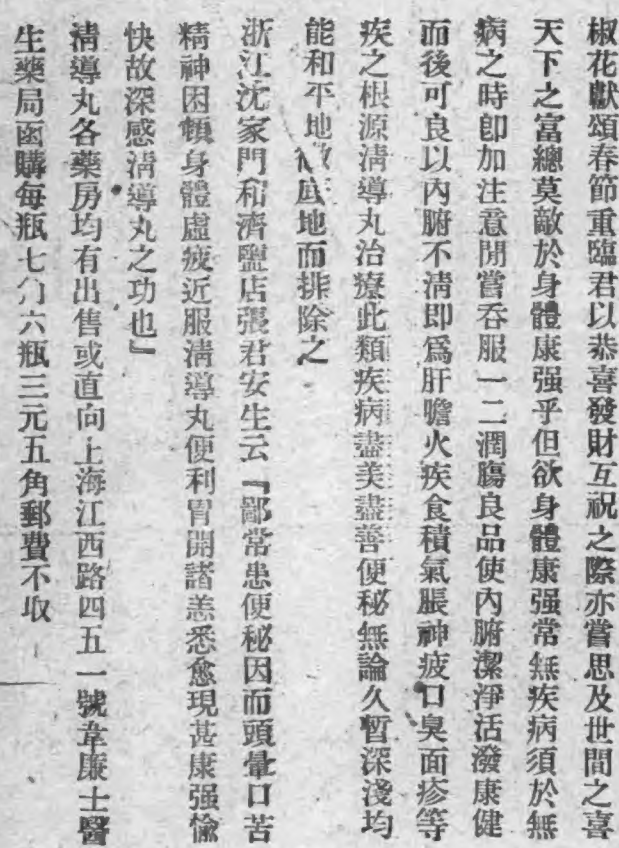 椒花獻頌春節重臨君以恭喜發財互祝之際亦嘗思及世間之喜
天下之富總莫敵於身體康强乎但欲身體康强常無疾病須於無
病之時卽加注意閒嘗吞服一二潤腸良品使內腑潔淨活潑康健
而後可良以內腑不清即爲肝膽火疾食積氣脹神疲口臭面疹等
疾之根源清導丸治療此類疾病盡美盡善便秘無論久暫深淺均
能和平地徹底地而排除之
浙江沈家門和濟鹽店張君安生云『鄙常患便秘因而頭暈口苦
精神困頓身體虛疲近服清導丸便利胃開諸恙悉愈現甚康强愉
快故深感清導丸之功也』
清導丸各藥房均有出售或直向上海江西路四五一號韋廉士醫
生藥局函購每瓶七角六瓶三元五角郵費不取